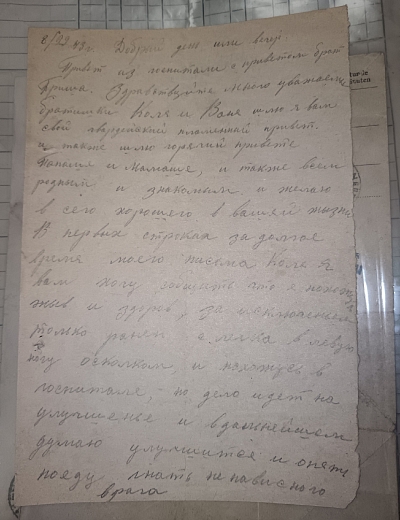 Добрый день или вечер
Привет из госпиталя с приветом брат
Гриша. Здравствуйте много уважаемые
братишки Коля и Ваня шлю я вам
свой гвардейский пламенный привет.
и также шлю горячий привет
Папаше и Мамаше, и также всем
родным и знакомым и желаю
в сего хорошего в вашей жизни
В первых строках за долгое
время моего письма Коля я
вам хочу сообщить что я
жыв и здоров, за исключением
только ранен легка в левую
ногу осколком, и нахожусь в
госпитале, но дело идет на
улучшенье и в дальнейшем
думаю улучшится и опять
поеду гнать не нависного
врага